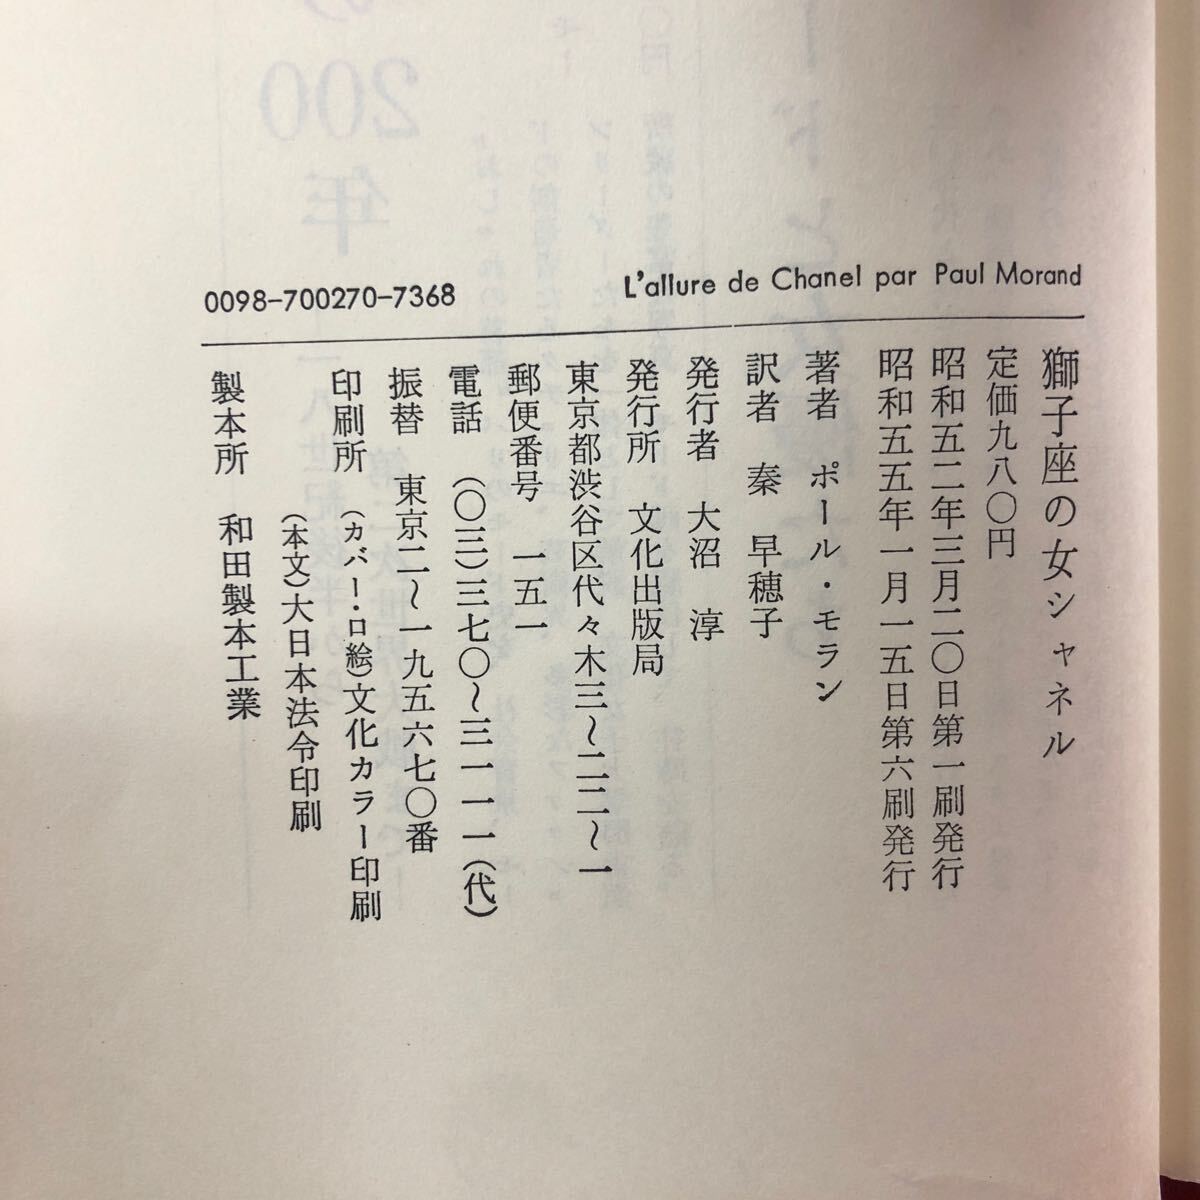 L'allure de Chanel par Paul Morand
0098-700270-7368
獅子座の女シャネル
定価九八〇円
昭和五二年三月二〇日第一刷発行
昭和五五年一月一五日第六刷発行
著者　ポール・モラン
訳者　秦　早穂子
発行者　大沼　淳
発行所　文化出版局
東京都渋谷区代々木三〜二二〜一
郵便番号　一五一
電話　(〇三)三七〇〜三一一一(代)
振替　東京二〜一九五六七〇番
印刷所　(カバー・口絵)文化カラー印刷
(本文)大日本法令印刷
製本所　和田製本工業
200年